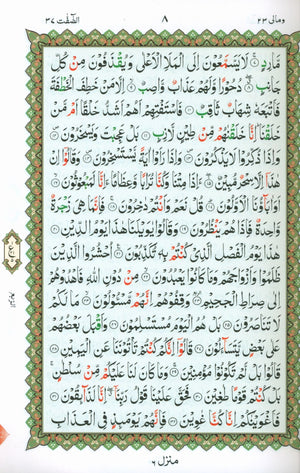 ومالى ٢٣ ٨ الصّٰفّٰت ٣٧
مَّارِدٍ ۚ لَا يَسَّمَّعُونَ اِلَى الْمَلَاِ الْاَعْلٰى وَيُقْذَفُوْنَ مِنْ كُلِّ
جَانِبٍ ۖ دُحُوْرًا وَّلَهُمْ عَذَابٌ وَّاصِبٌ ۙ اِلَّا مَنْ خَطِفَ الْخَطْفَةَ
فَاَتْبَعَهٗ شِهَابٌ ثَاقِبٌ ۙ فَاسْتَفْتِهِمْ اَهُمْ اَشَدُّ خَلْقًا اَمْ مَّنْ
خَلَقْنَا ؕ اِنَّا خَلَقْنٰهُمْ مِّنْ طِيْنٍ لَّازِبٍ ۙ بَلْ عَجِبْتَ وَيَسْخَرُوْنَ ۙ
وَاِذَا ذُكِّرُوْا لَا يَذْكُرُوْنَ ۙ وَاِذَا رَاَوْا اٰيَةً يَّسْتَسْخِرُوْنَ ۙ وَقَالُوْۤا اِنْ
هٰذَاۤ اِلَّا سِحْرٌ مُّبِيْنٌ ۙ ءَاِذَا مِتْنَا وَكُنَّا تُرَابًا وَّعِظَامًا ءَاِنَّا لَمَبْعُوْثُوْنَ ۙ
اَوَاٰبَآؤُنَا الْاَوَّلُوْنَ ؕ قُلْ نَعَمْ وَاَنْتُمْ دَاخِرُوْنَ ۚ فَاِنَّمَا هِيَ زَجْرَةٌ
وَّاحِدَةٌ فَاِذَا هُمْ يَنْظُرُوْنَ وَقَالُوْا يٰوَيْلَنَا هٰذَا يَوْمُ الدِّيْنِ
هٰذَا يَوْمُ الْفَصْلِ الَّذِيْ كُنْتُمْ بِهٖ تُكَذِّبُوْنَ ۧ اُحْشُرُوا الَّذِيْنَ
ظَلَمُوْا وَاَزْوَاجَهُمْ وَمَا كَانُوْا يَعْبُدُوْنَ ۙ مِنْ دُوْنِ اللّٰهِ فَاهْدُوْهُمْ
اِلٰى صِرَاطِ الْجَحِيْمِ ۙ وَقِفُوْهُمْ اِنَّهُمْ مَّسْئُوْلُوْنَ ۙ مَا لَكُمْ
لَا تَنَاصَرُوْنَ بَلْ هُمُ الْيَوْمَ مُسْتَسْلِمُوْنَ وَاَقْبَلَ بَعْضُهُمْ
عَلٰى بَعْضٍ يَّتَسَآءَلُوْنَ قَالُوْۤا اِنَّكُمْ كُنْتُمْ تَاْتُوْنَنَا عَنِ الْيَمِيْنِ
قَالُوْا بَلْ لَّمْ تَكُوْنُوْا مُؤْمِنِيْنَ ۚ وَمَا كَانَ لَنَا عَلَيْكُمْ مِّنْ سُلْطٰنٍ ۚ
بَلْ كُنْتُمْ قَوْمًا طٰغِيْنَ فَحَقَّ عَلَيْنَا قَوْلُ رَبِّنَاۤ ۖ اِنَّا لَذَآئِقُوْنَ
فَاَغْوَيْنٰكُمْ اِنَّا كُنَّا غٰوِيْنَ فَاِنَّهُمْ يَوْمَئِذٍ فِى الْعَذَابِ
منزل ٦